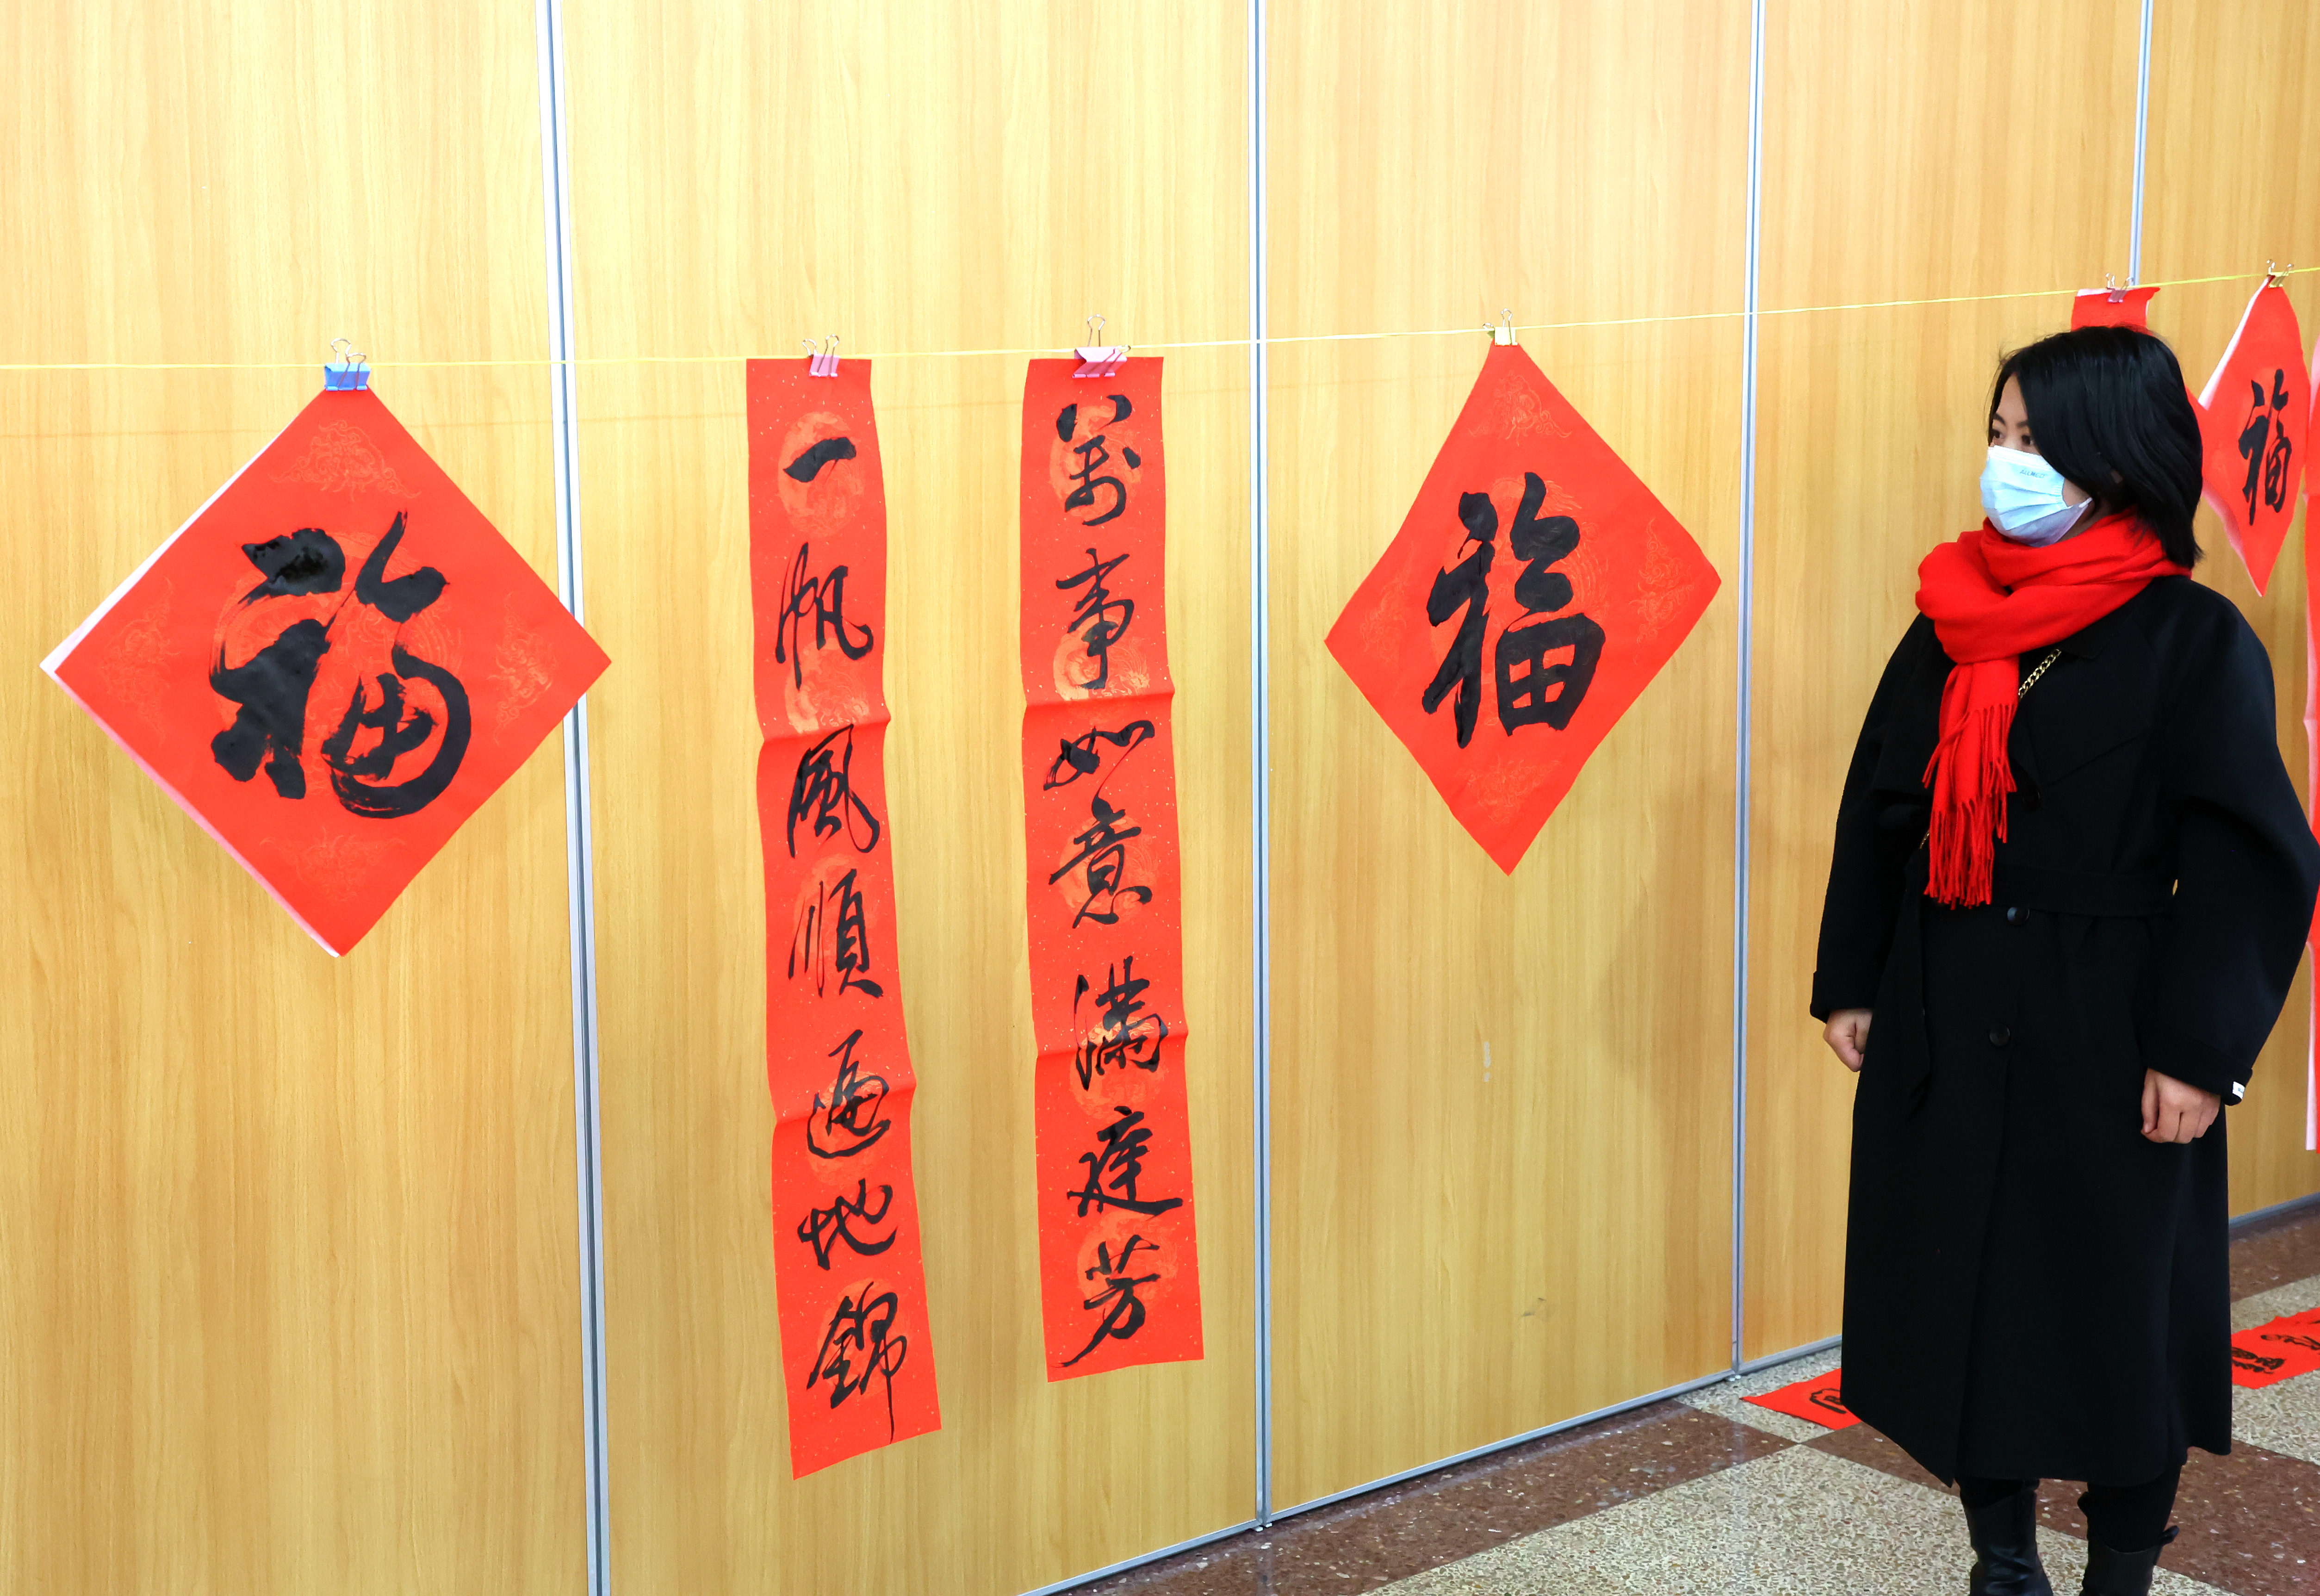 福
一帆風順遍地錦
萬事如意滿庭芳
福
福